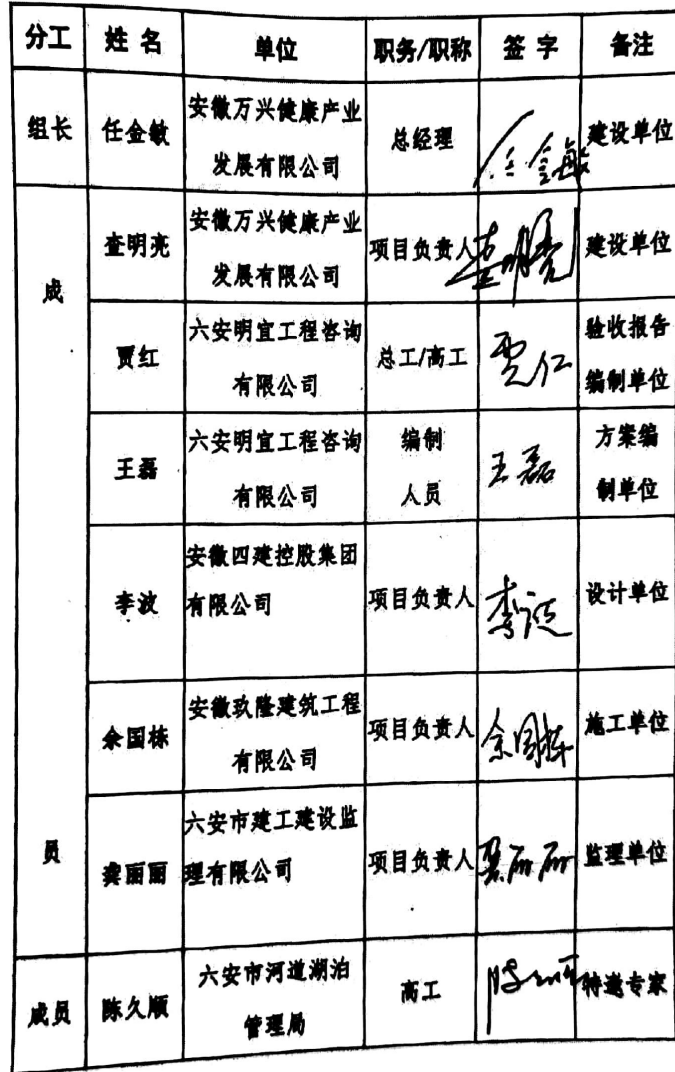 分工 姓名 单位 职务/职称 签字 备注
组长 任金敏 安徽万兴健康产业发展有限公司 总经理 任金敏 建设单位
成员
查明亮 安徽万兴健康产业发展有限公司 项目负责人 查明亮 建设单位
贾红 六安明宜工程咨询有限公司 总工/高工 验收报告编制单位
王磊 六安明宜工程咨询有限公司 编制人员 王磊 方案编制单位
李波 安徽四建控股集团有限公司 项目负责人 设计单位
余国栋 安徽玖隆建筑工程有限公司 项目负责人 余国栋 施工单位
龚丽丽 六安市建工建设监理有限公司 项目负责人 龚丽丽 监理单位
成员 陈久顺 六安市河道湖泊管理局 高工 特邀专家